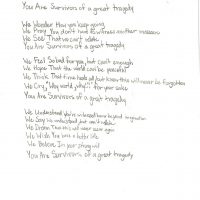 You Are Survivors of a great tragedy
We Wonder How you keep going
We Pray You don't have to witness another massacre
We See That we can't relate
You Are Survivors of a great tragedy
We Feel So bad for you, but can't enough
We Hope That the world can be peaceful
We Think That time heals all, but know this will never be forgotten
We Cry, "Why world, why?" for your sake
You Are Survivors of a great tragedy
We Understand you're in beyond imagination
We Say We understand, but can't relate
We Dream That this will never occur again
We Wish You live a better life
We Believe In your strong will
You Are Survivors of a great tragedy